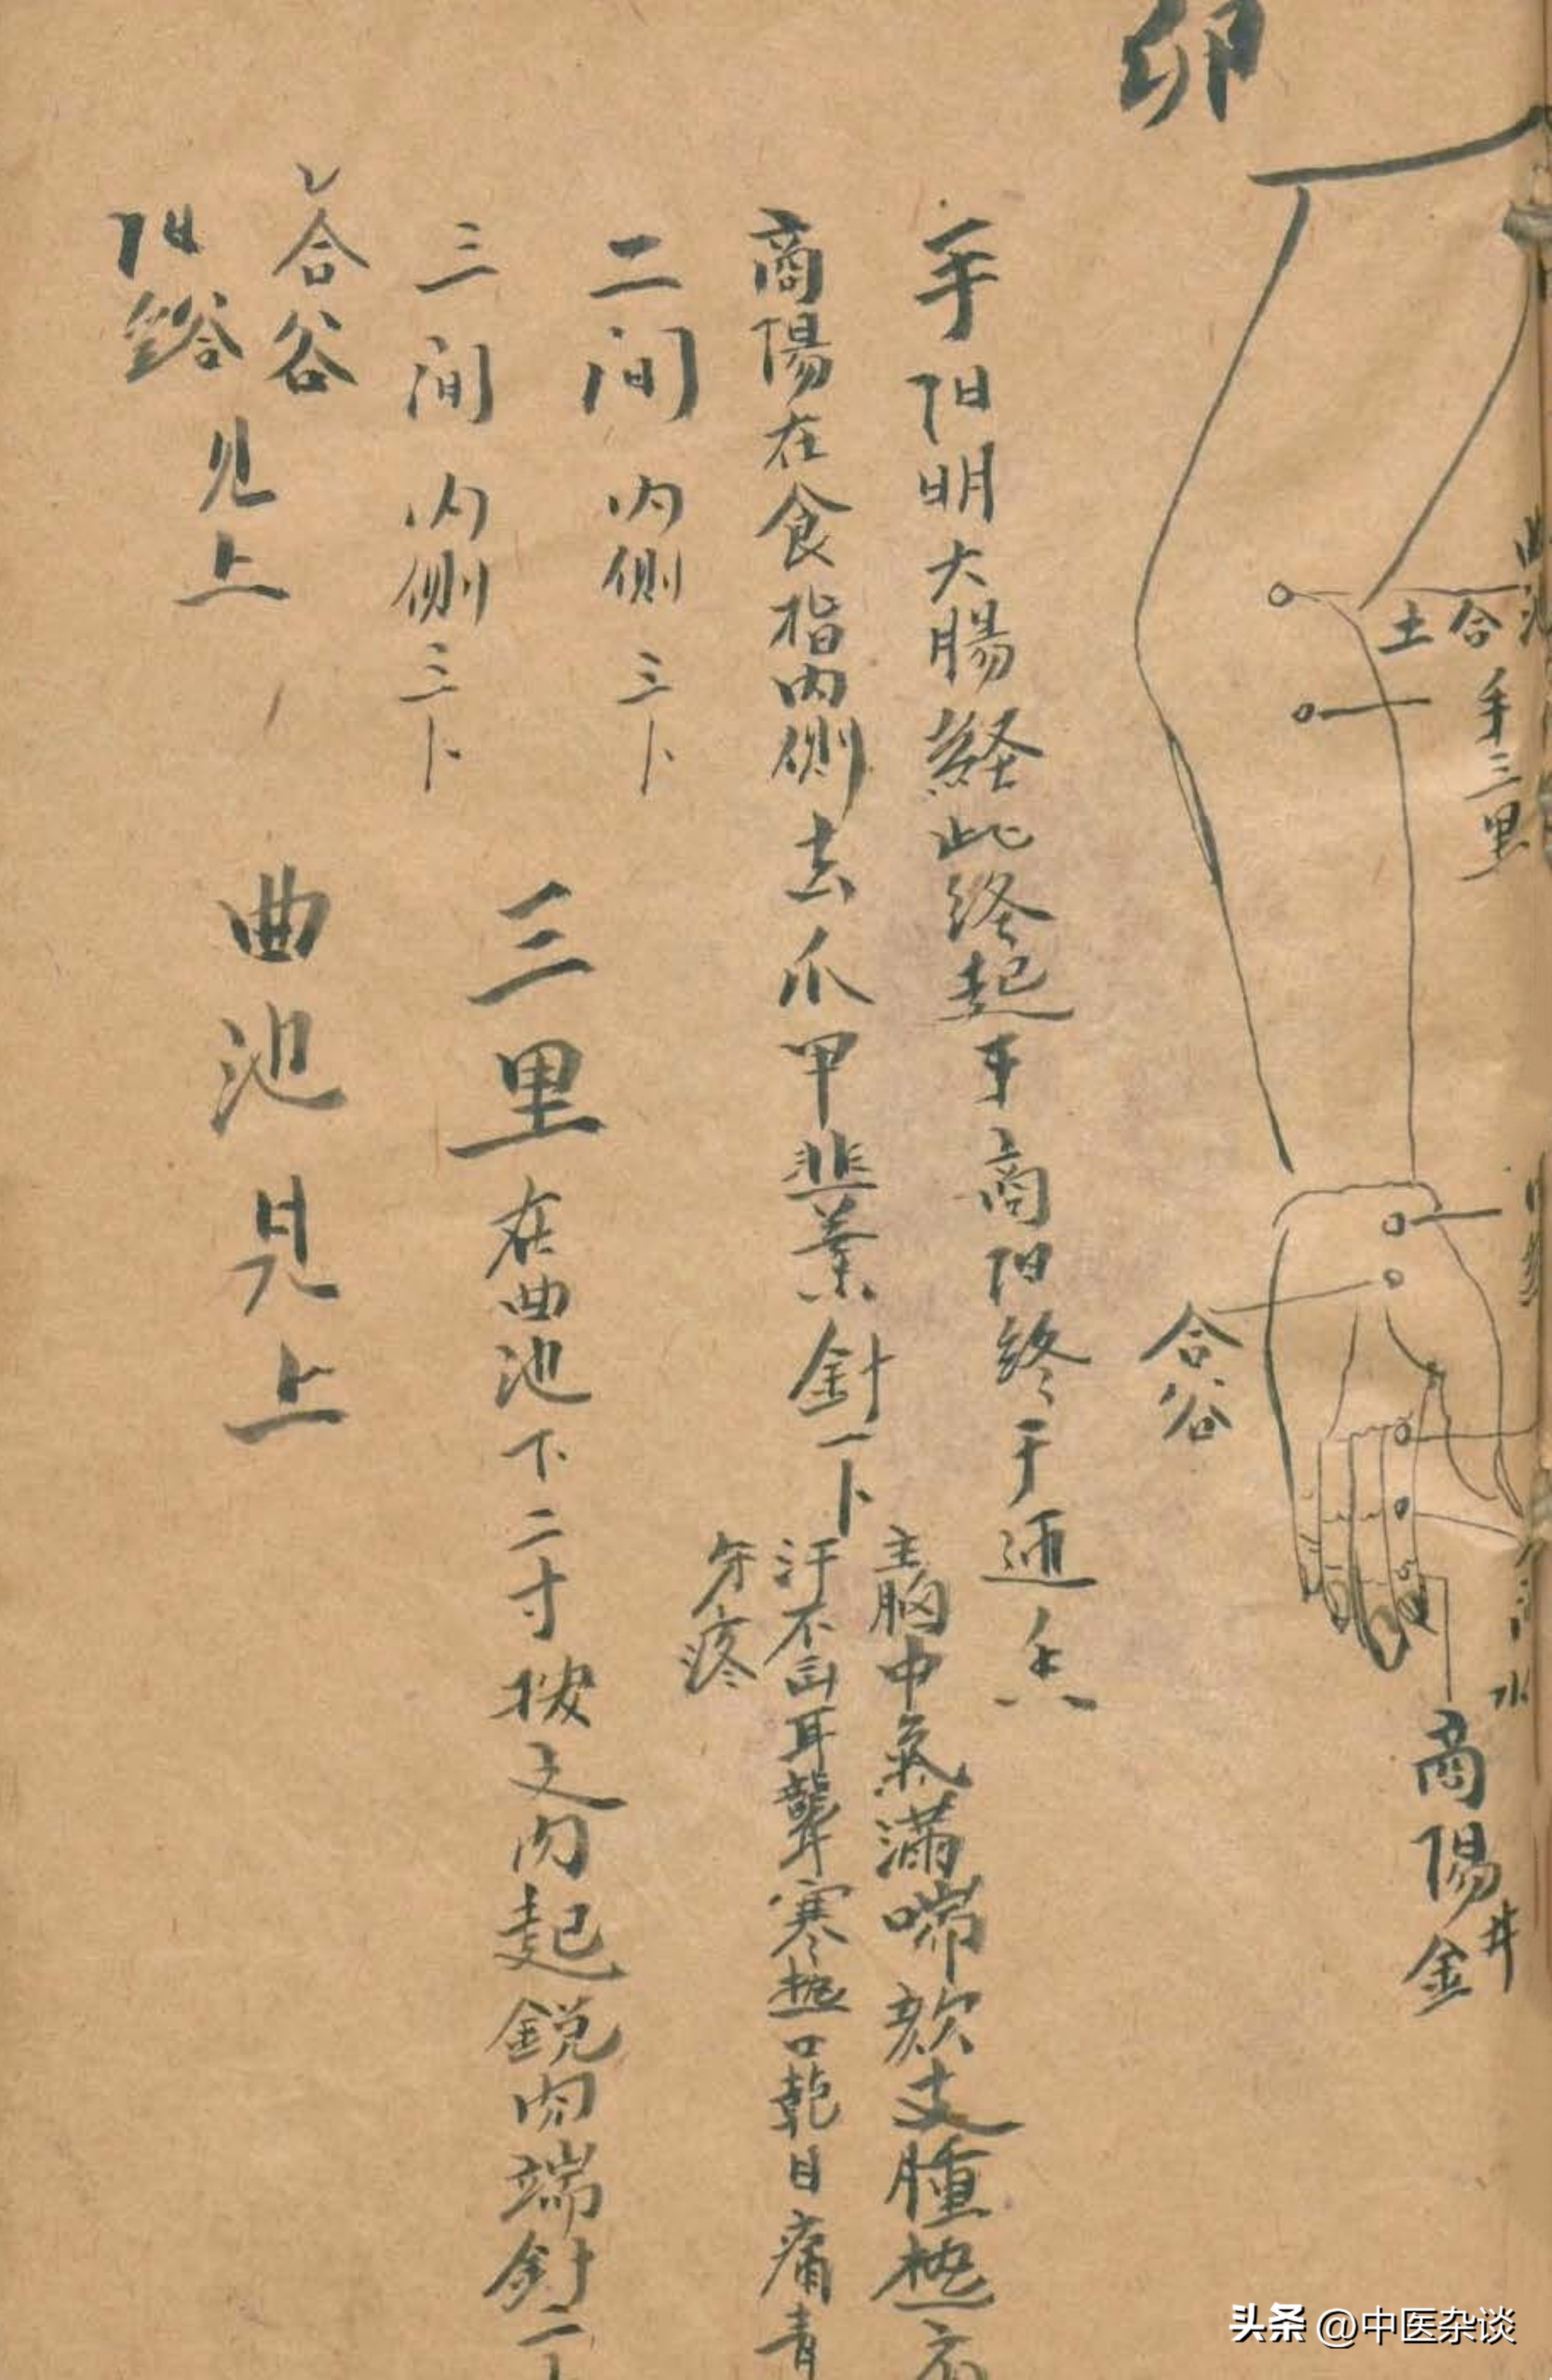 卯
曲池
合
土
手三里
合谷
水
商陽
井
金
手阳明大腸経此终起于商阳终于迊香
商陽在食指内側去爪甲韮葉針一卜
主胸中氣滿喘欬支腫热
汗不出耳聾寒热口乾目痛青
牙疼
二间 内側 三卜
三间 内侧 三卜
三里在曲池下二寸按之肉起銳肉端針二卜
合谷
阳谿
见上
曲池見上
头条 @中医杂谈